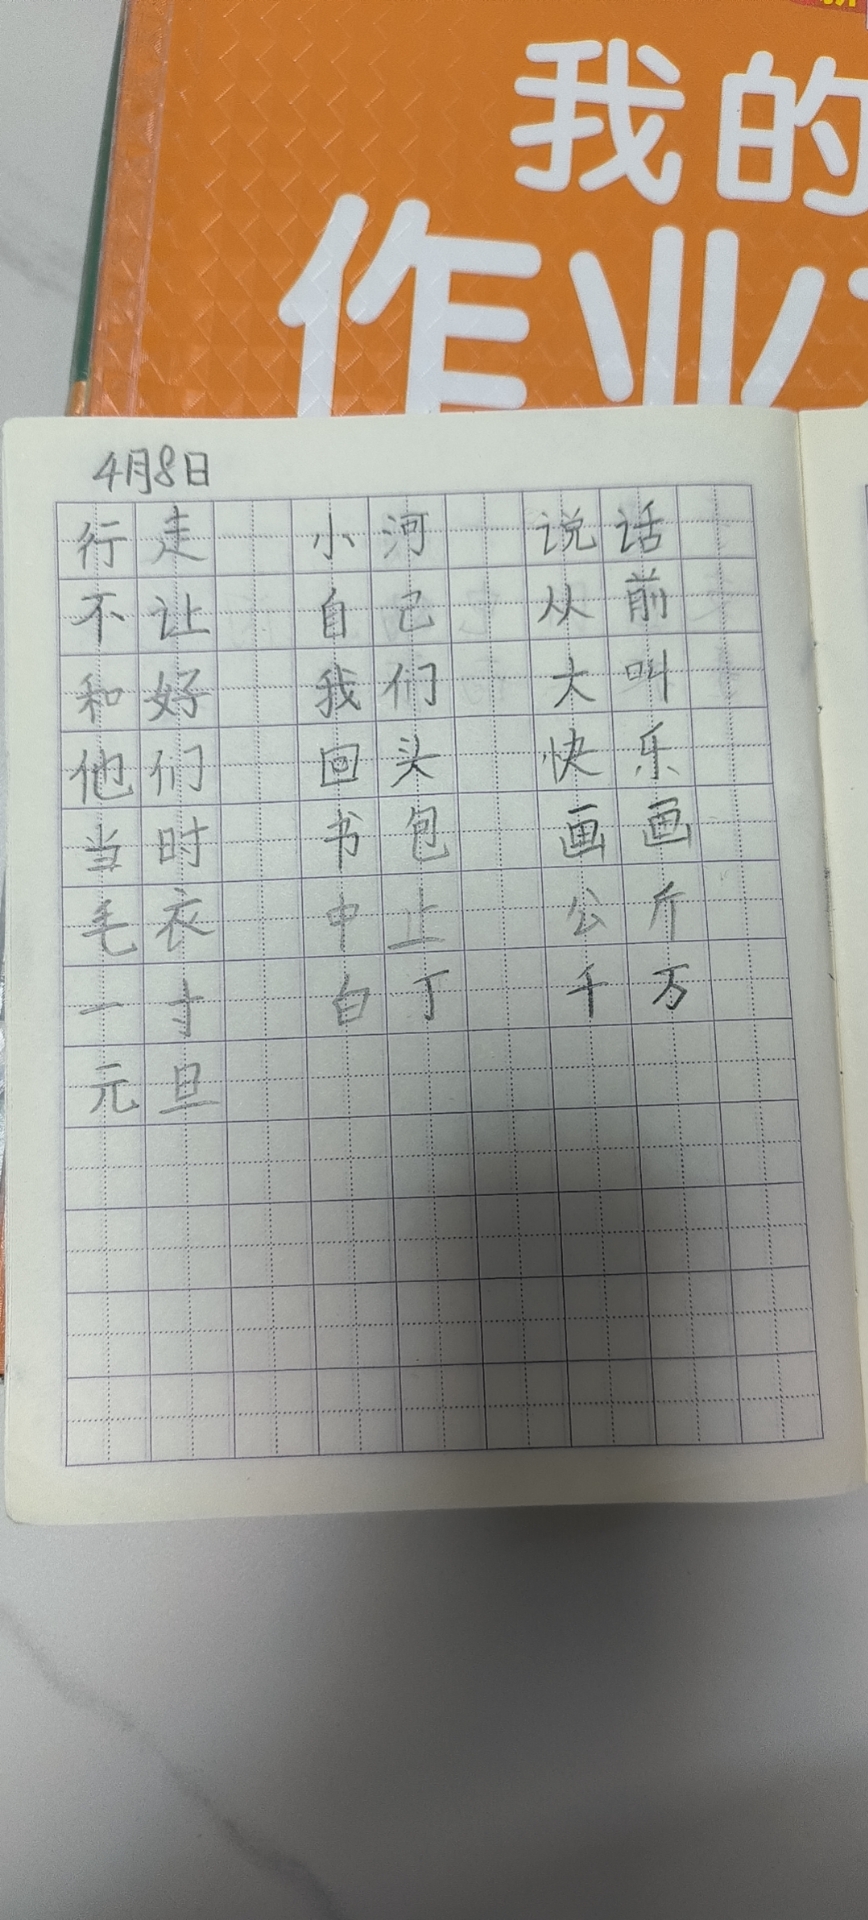 我的
作业
4月8日
行走 小河 说话
不让 自己 从前
和好 我们 大叫
他们 回头 快乐
当时 书包 画画
毛衣 中止 公斤
一寸 白丁 千万
元旦